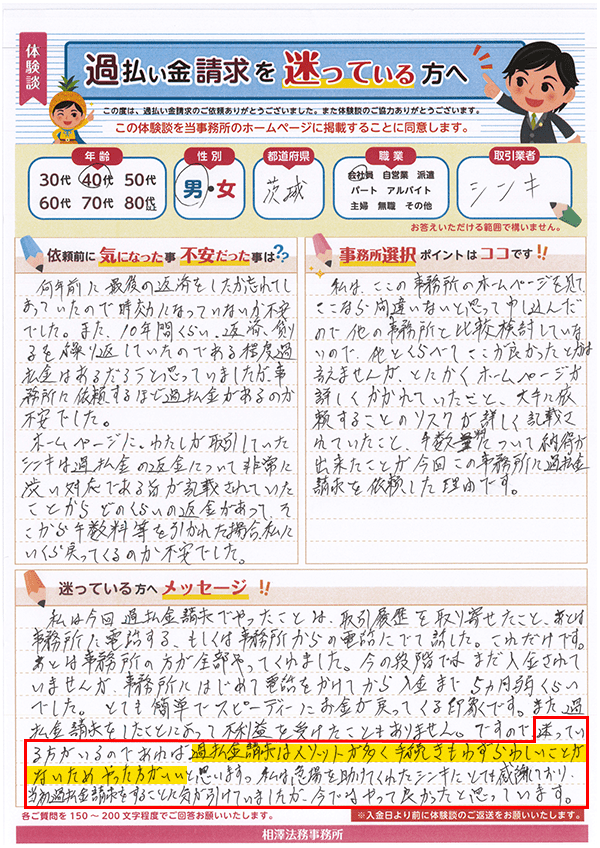 体験談
過払い金請求を迷っている方へ
この度は、過払い金請求のご依頼ありがとうございました。また体験談のご協力ありがとうございます。
この体験談を当事務所のホームページに掲載することに同意します。
年齢
30代 40代 50代
60代 70代 80代以上
性別
男・女
都道府県
茨城
職業
会社員 自営業 派遣
パート アルバイト
主婦 無職 その他
取引業者
シンキ
お答えいただける範囲で構いません。
依頼前に気になった事 不安だった事は??
何年前に最後の返済をしたか忘れてし
まっていたので時効になっていないか不安
でした。また、10年間くらい返済、借り
るを繰り返していたのである程度過
払金はあるだろうと思っていましたが、事
務所に依頼するほど過払金があるのか
不安でした。
ホームページに、わたしが取引していた
シンキは過払金の返金について非常に
渋い対応である旨が記載されていた
ことからどのくらいの返金があって、そ
こから手数料等を引かれた場合、私に
いくら戻ってくるのか不安でした。
事務所選択ポイントはココです!!
私は、ここの事務所のホームページを見て、
ここなら間違いないと思って申し込んだ
ので他の事務所と比較検討していな
いので、他とくらべてここが良かったとかは
言えませんが、とにかくホームページが
詳しくかかれていたこと、大手に依
頼することのリスクが詳しく記載さ
れていたこと、手数料について納得が
出来たことが今回この事務所に過払金
請求を依頼した理由です。
迷っている方へメッセージ!!
私は今回過払金請求でやったことは、取引履歴を取り寄せたこと、あとは
事務所に電話する、もしくは事務所からの電話にでて話した。これだけです。
あとは事務所の方が全部やってくれました。今の段階ではまだ入金されて
いませんが、事務所にはじめて電話をかけてから入金まで5ヵ月弱くらい
でした。とても簡単でスピーディーにお金が戻ってくる印象です。また、過
払金請求をしたことによって不利益を受けたこともありません。ですので、迷ってい
る方がいるのであれば、過払金請求はメリットが多く手続きもわずらわしいことが
ないためやった方がいいと思います。私は、窮地を助けてくれたシンキにとても感謝しており、
当初過払金請求をすることに気が引けていましたが、今ではやって良かったと思っています。
各ご質問を150～200文字程度でご回答お願いします。
※入金日より前に体験談のご返送をお願いいたします。
相澤法務事務所